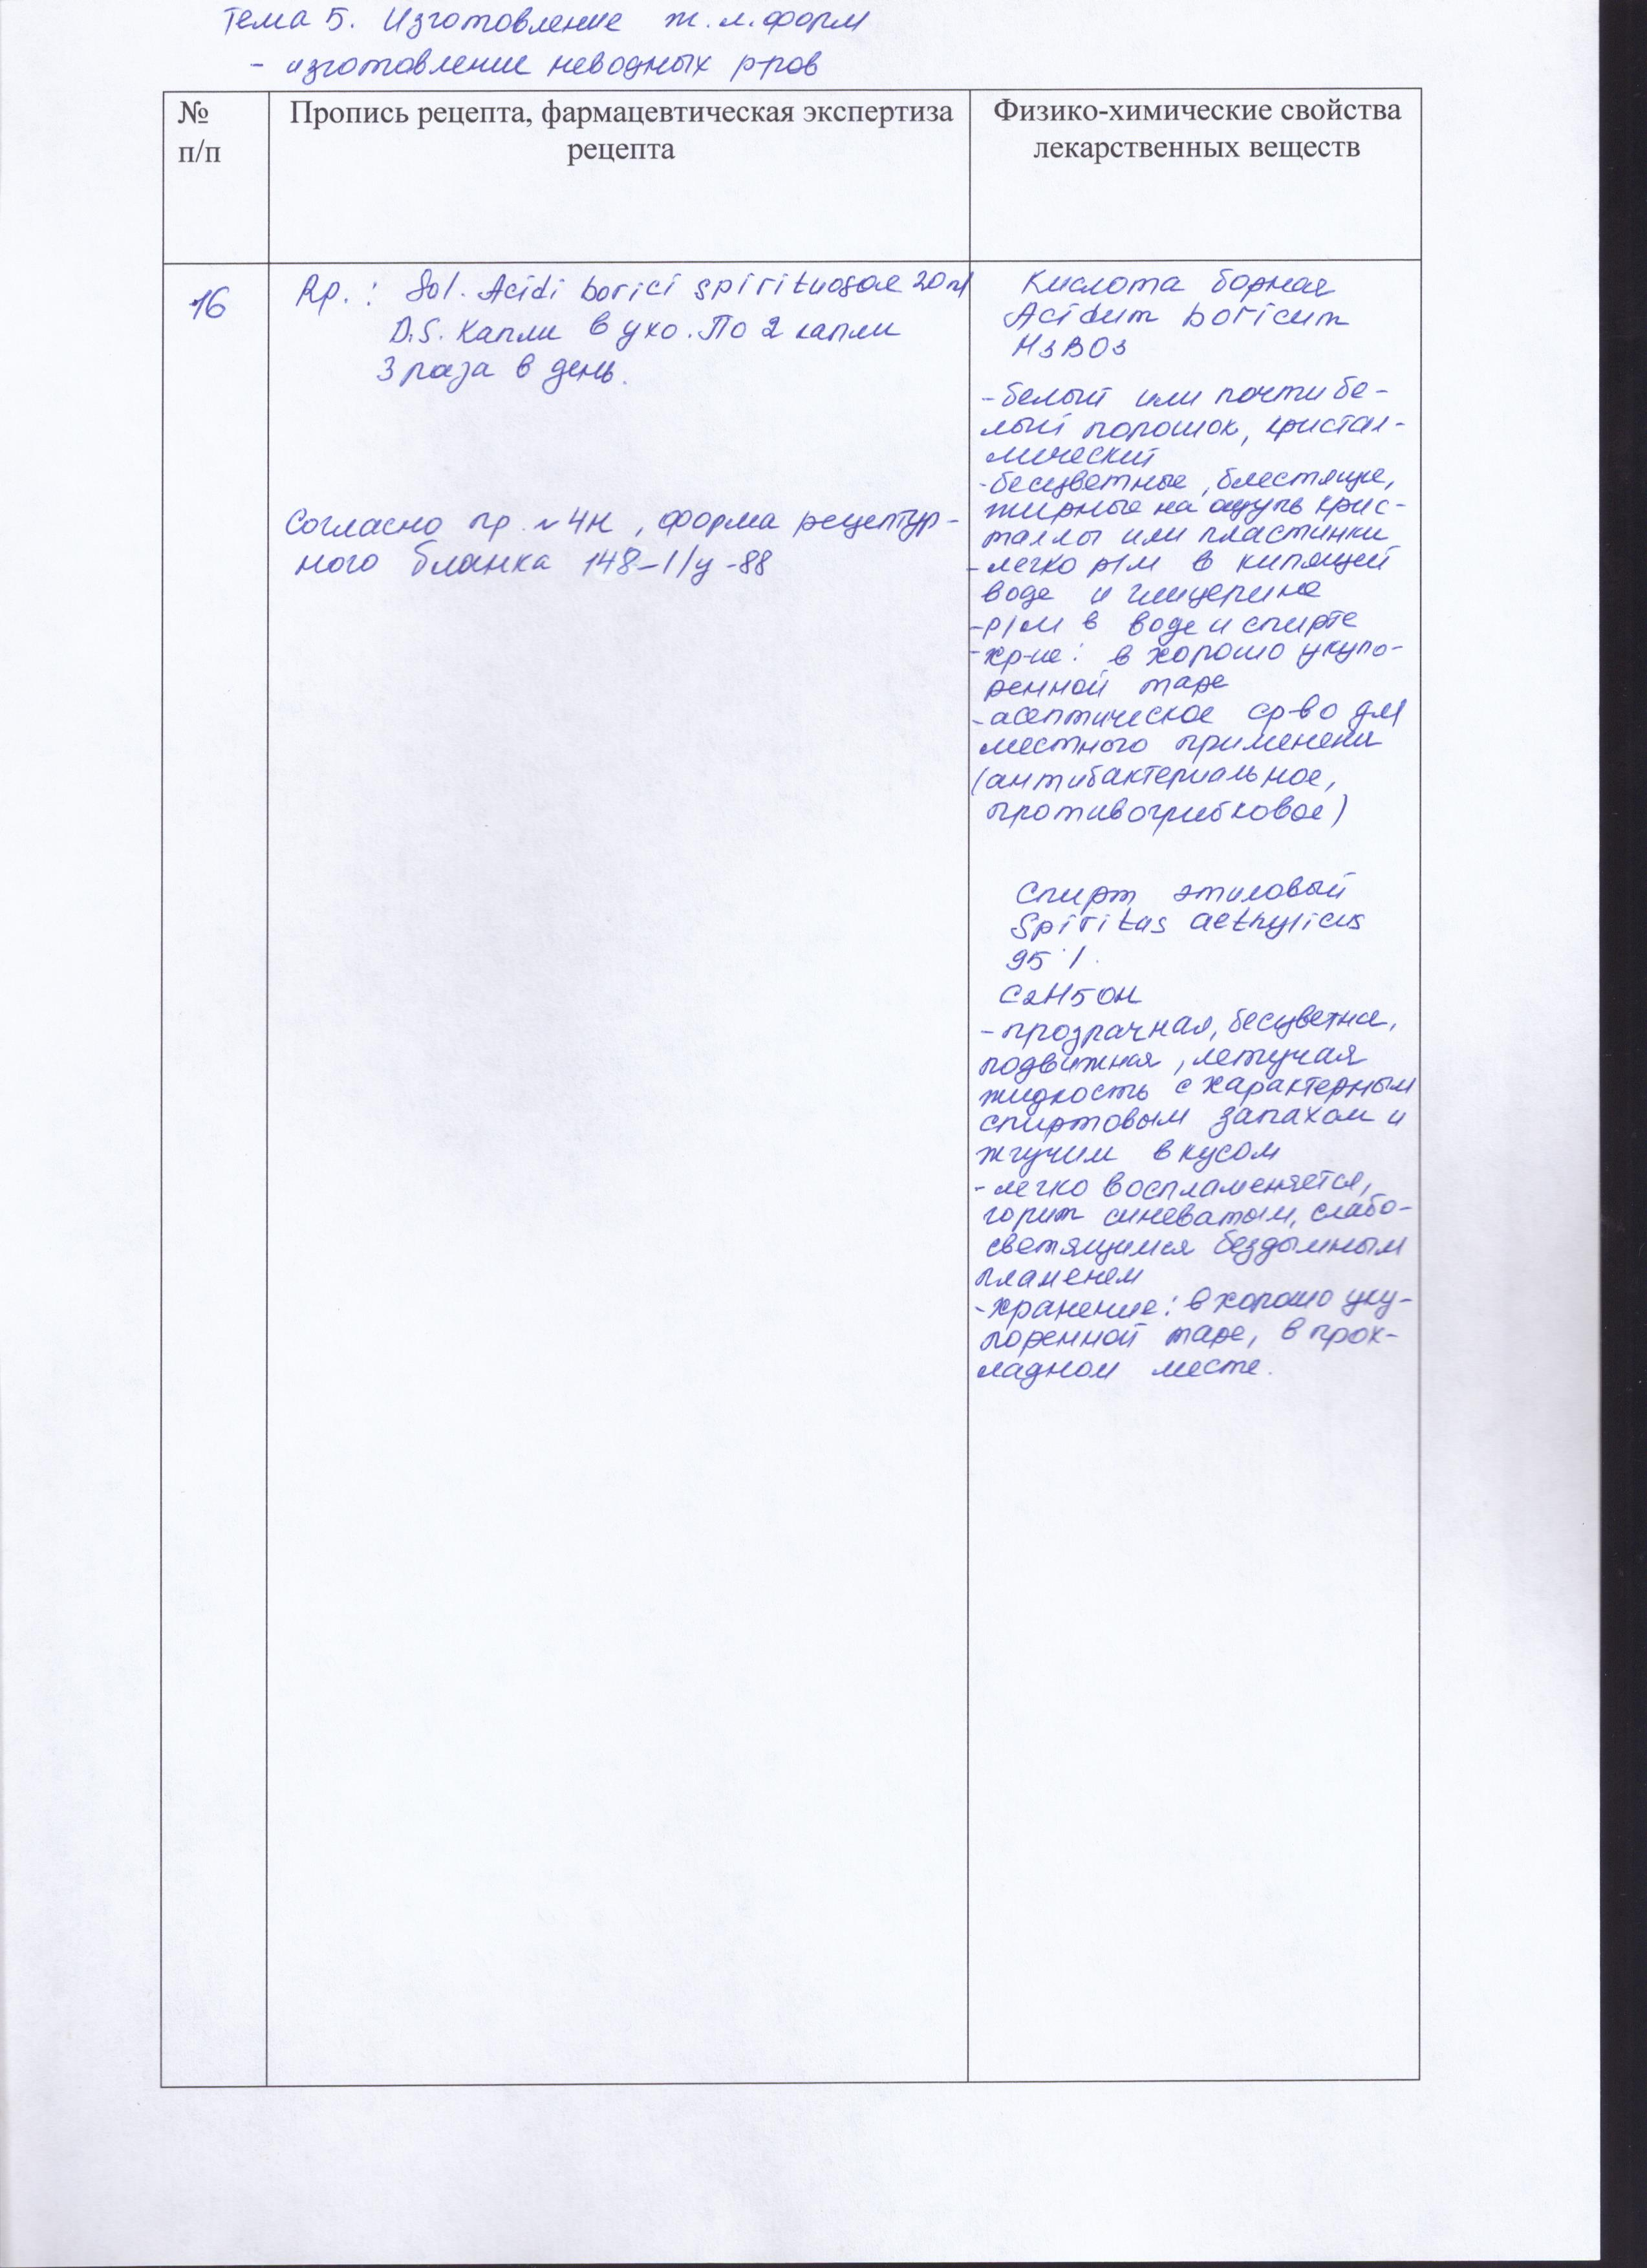 Тема 5. Изготовление ж.л.форм
- изготовление неводных р-ров
№
п/п
Пропись рецепта, фармацевтическая экспертиза
рецепта
Физико-химические свойства
лекарственных веществ
16
Rp.: Sol. Acidi borici spirituosae 20 ml
D.S. Капли в ухо. По 2 капли
3 раза в день.
Согласно пр. №4н, форма рецептур-
ного бланка 148-1/у-88
Кислота борная
Acidum boricum
H3BO3
- белый или почти бе-
лый порошок, кристал-
лический
- бесцветные, блестящие,
жирные на ощупь крис-
таллы или пластинки
- легко р/м в кипящей
воде и глицерине
- р/м в воде и спирте
- хр-ие: в хорошо укупо-
ренной таре
- асептическое ср-во для
местного применени
(антибактериальное,
противогрибковое)
Спирт этиловый
Spiritus aethylicus
95%
C2H5OH
- прозрачная, бесцветная,
подвижная, летучая
жидкость с характерным
спиртовым запахом и
жгучим вкусом
- легко воспламеняется,
горит синеватым, слабо-
светящимся бездымным
пламенем
- хранение: в хорошо уку-
поренной таре, в прох-
ладном месте.